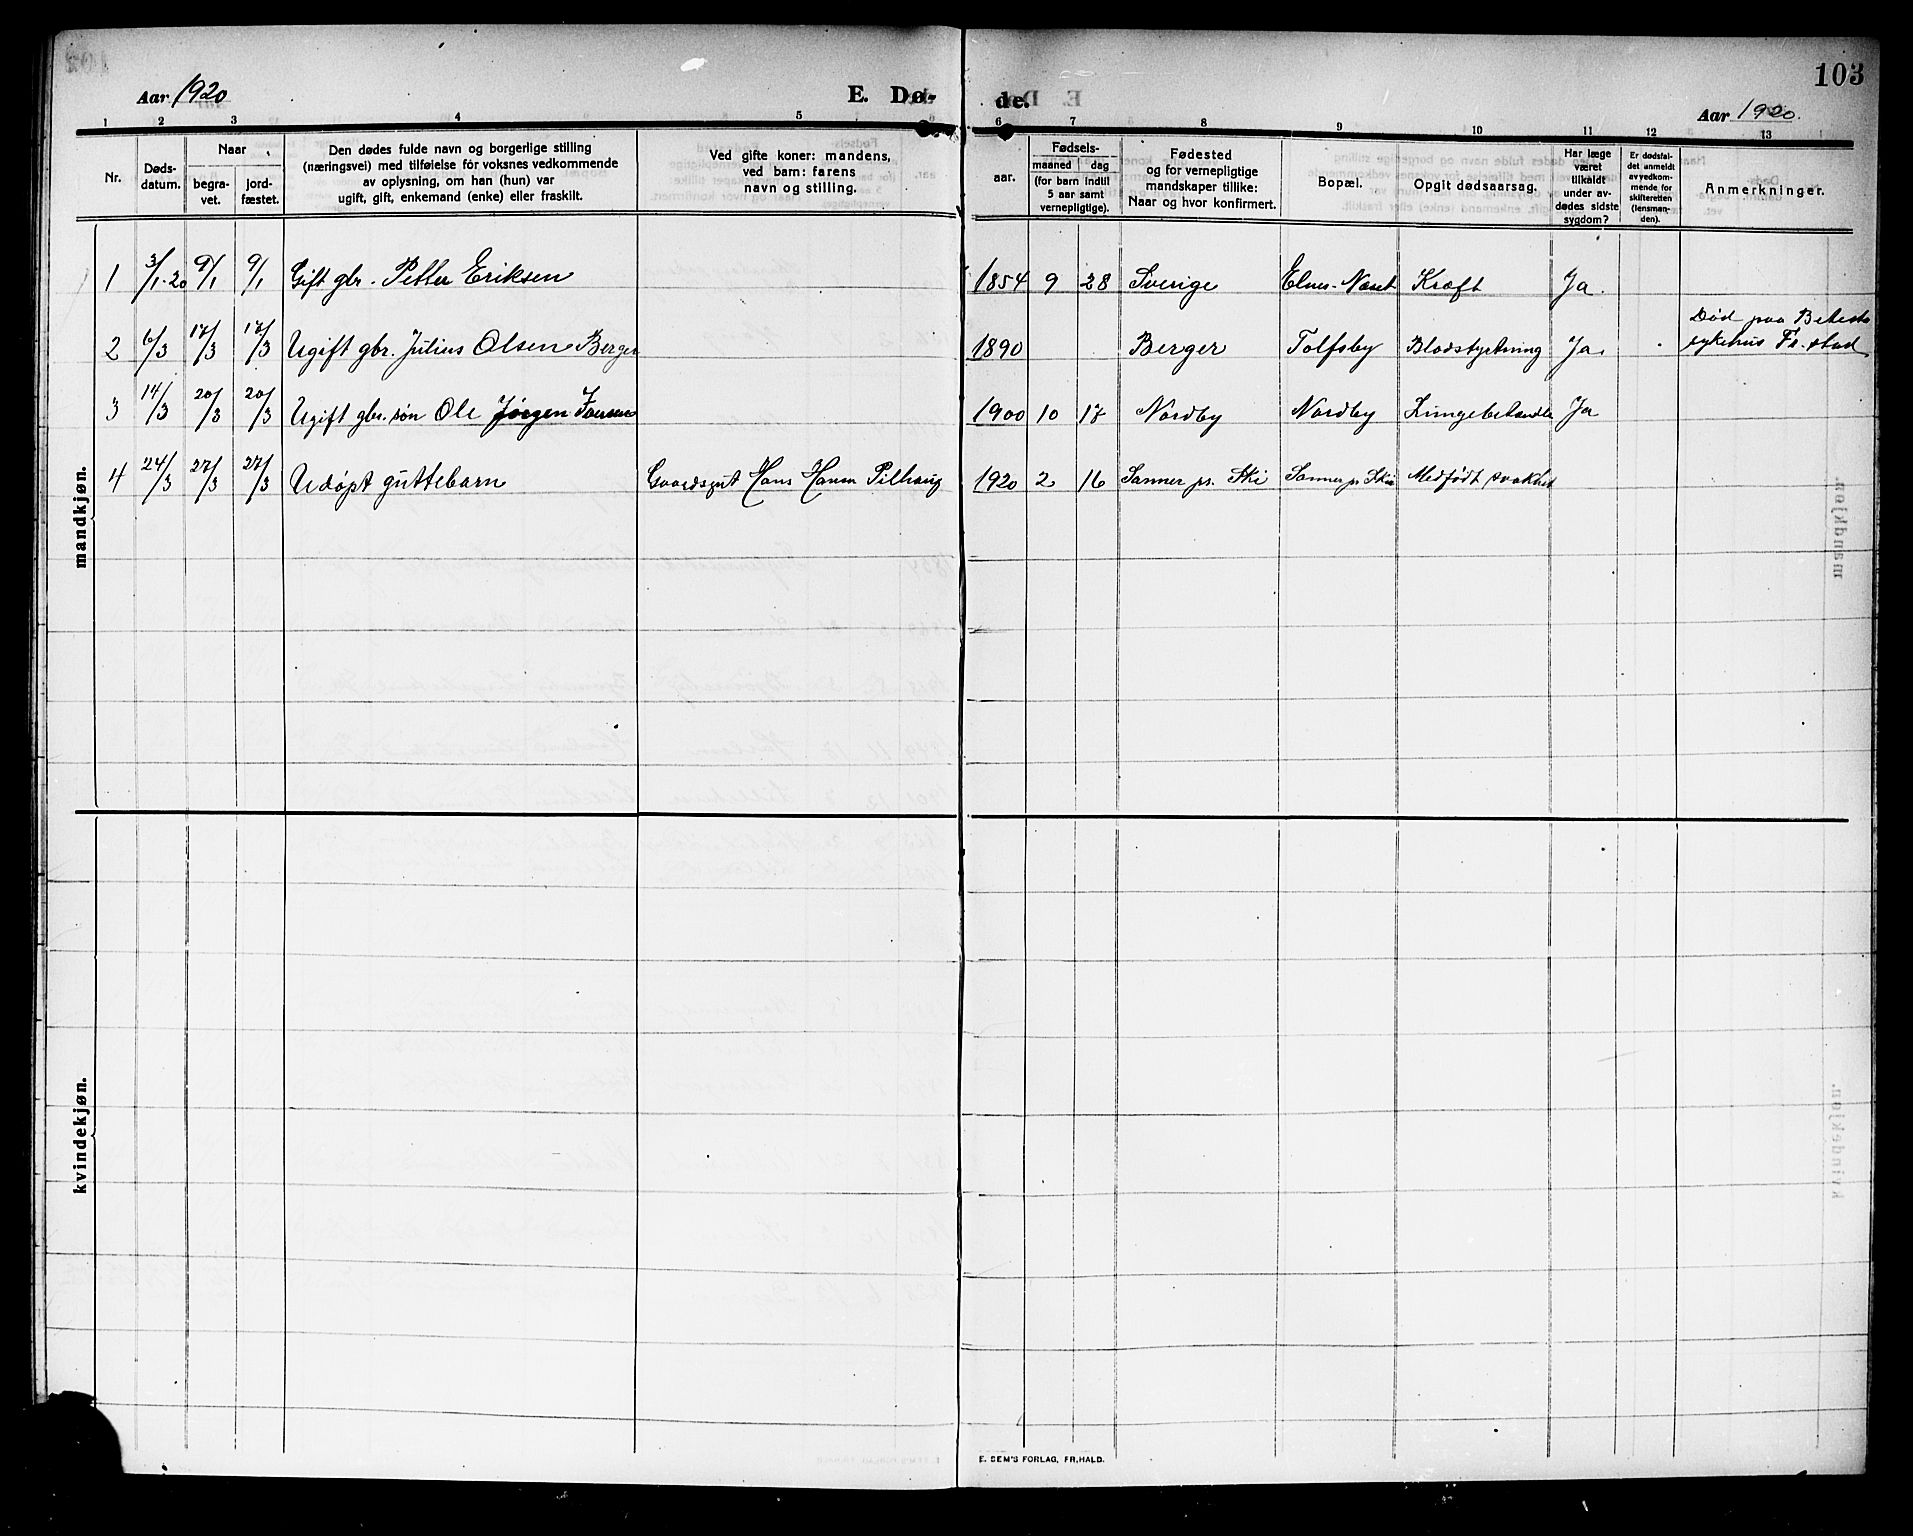 103
Aar 1920
E. Dø-
de.
Aar 1920.
1 2 3 4 5 6 7 8 9 10 11 12 13
Nr.
Døds-
datum.
Naar
begra-
vet.
jord-
fæstet.
Den dødes fulde navn og borgerlige stilling
(næringsvei) med tilføielse for voksnes vedkommende
av oplysning, om han (hun) var
ugift, gift, enkemand (enke) eller fraskilt.
Ved gifte koner: mandens,
ved barn: farens
navn og stilling.
aar.
Fødsels-
maaned
dag
(for barn indtil
5 aar samt
vernepligtige).
Fødested
og for vernepligtige
mandskaper tillike:
Naar og hvor konfirmert.
Bopæl.
Opgit dødsaarsag.
Har læge
været
tilkaldt
under av-
dødes sidste
sygdom?
Er dødsfal-
det anmeldt
av vedkom-
mende for
skifteretten
(lensman-
den).
Anmerkninger.
mandkjøn.
1 3/1-20 9/1 9/1 Gift gbr. Petter Eriksen 1854 9 28 Sverige Kræft Ja.
2 6/3 17/3 17/3 Ugift gbr. Julius Olsen Berger 1890 Berger Tolfsby Blodstyrtning Ja. Død paa
sykehus Fr.stad
3 14/3 20/3 20/3 Ugift gbr. søn Ole Jørgen Iversen 1900 10 17 Nordby Nordby Ja
4 24/3 27/3 27/3 Udøpt guttebarn Gaardsgut Hans Hansen Pilhaug 1920 2 16 Sanner pr. Ski Sanner pr Ski Medfødt svakhet
kvindekjøn.
E. SEM'S FORLAG, FR.HALD.